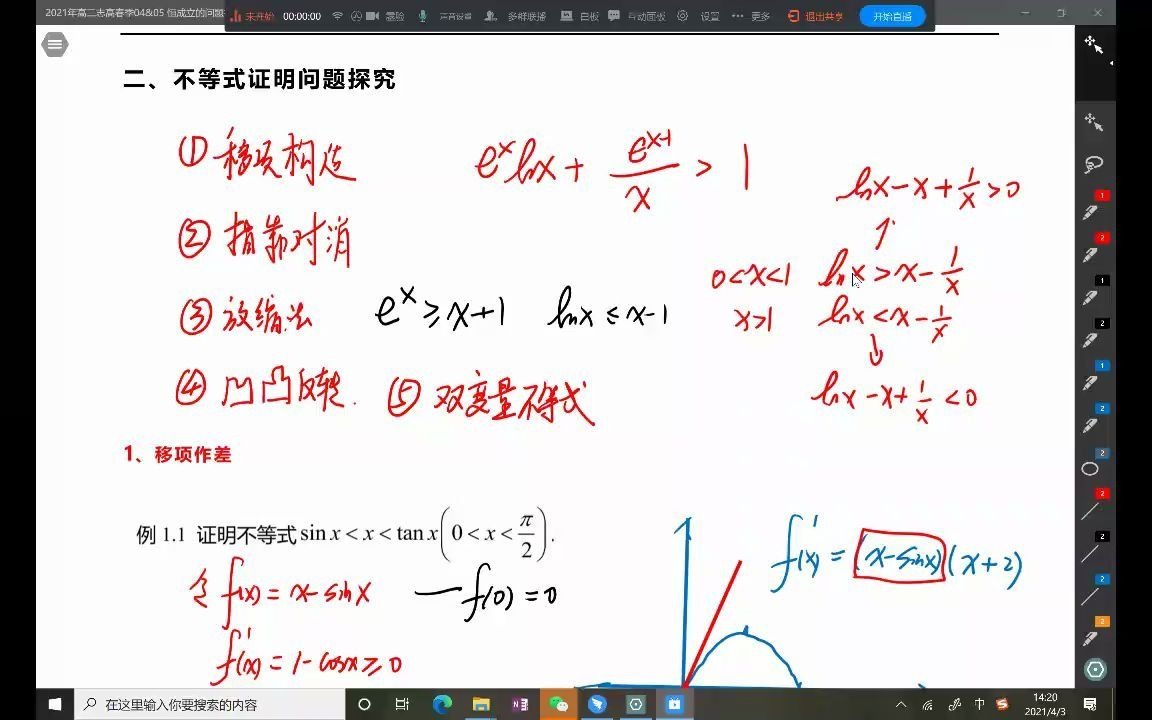 2021年高二志高春季04&05 恒成立的问题
未开始 00:00:00 声音设置 多群联播 白板 互动面板 设置 ··· 更多 退出共享 开始直播
二、不等式证明问题探究
① 移项构造
eˣlnx + eˣ⁻¹/x > 1
lnx - x + 1/x > 0
② 指靠对消
0<x<1 lnx > x - 1/x
③ 放缩法 eˣ ≥ x+1 lnx ≤ x-1
x>1 lnx < x - 1/x
④ 凹凸反转. ⑤ 双变量不等式
lnx - x + 1/x < 0
1、移项作差
例 1.1 证明不等式 sin x < x < tan x (0 < x < π/2).
f'(x) = (x-sinx)(x+2)
令 f(x) = x-sinx — f(0) = 0
f'(x) = 1-cosx ≥ 0
在这里输入你要搜索的内容
中
14:20
2021/4/3